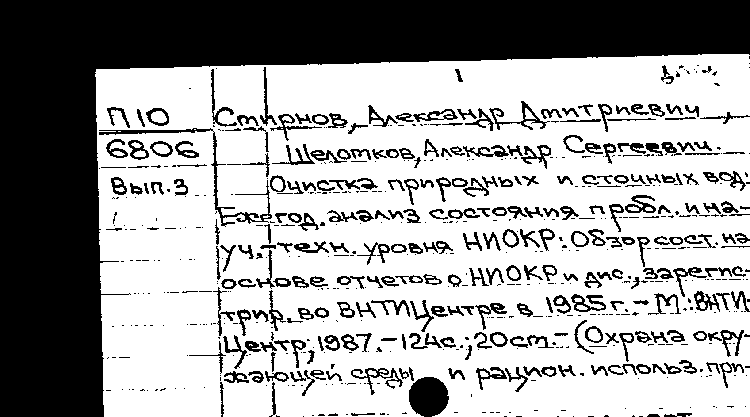 П10 Смирнов, Александр Дмитриевич,
6806 Шелотков, Александр Сергеевич.
Вып.3 Очистка природных и сточных вод:
Ежегод. анализ состояния пробл. и на-
уч.-техн. уровня НИОКР: Обзор сост. на
основе отчетов о НИОКР и дис., зарегис-
трир. во ВНТИЦентре в 1985 г. - М.: ВНТИ-
Центр, 1987. - 124с.; 20см. - (Охрана окру-
жающей среды и рацион. использ. при-